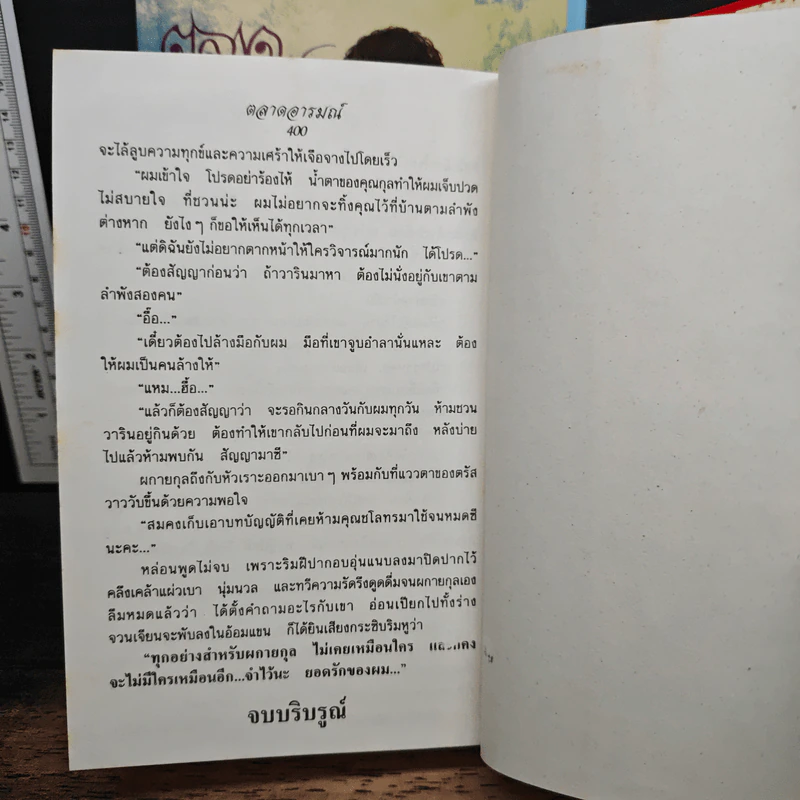 ตลาด
ตลาดอารมณ์
400
จะไล้ลูบความทุกข์และความเศร้าให้เจือจางไปโดยเร็ว
“ผมเข้าใจ โปรดอย่าร้องไห้ น้ำตาของคุณกุลทำให้ผมเจ็บปวด
ไม่สบายใจ ที่ชวนน่ะ ผมไม่อยากจะทิ้งคุณไว้ที่บ้านตามลำพัง
ต่างหาก ยังไงๆ ก็ขอให้เห็นได้ทุกเวลา”
“แต่ดิฉันยังไม่อยากตากหน้าให้ใครวิจารณ์มากนัก ได้โปรด...”
“ต้องสัญญาก่อนว่า ถ้าวารินมาหา ต้องไม่นั่งอยู่กับเขาตาม
ลำพังสองคน”
“อื๊อ...”
“เดี๋ยวต้องไปล้างมือกับผม มือที่เขาจูบอำลานั่นแหละ ต้อง
ให้ผมเป็นคนล้างให้”
“แหม...ฮื้อ...”
“แล้วก็ต้องสัญญาว่า จะรอกินกลางวันกับผมทุกวัน ห้ามชวน
วารินอยู่กินด้วย ต้องทำให้เขากลับไปก่อนที่ผมจะมาถึง หลังบ่าย
ไปแล้วห้ามพบกัน สัญญามาซี”
ผกายกุลถึงกับหัวเราะออกมาเบาๆ พร้อมกับที่แววตาของตรัส
วาววับขึ้นด้วยความพอใจ
“สมคงเก็บเอาบทบัญญัติที่เคยห้ามคุณชโลทรมาใช้จนหมดซี
นะคะ...”
หล่อนพูดไม่จบ เพราะริมฝีปากอบอุ่นแนบลงมาปิดปากไว้
คลึงเคล้าแผ่วเบา นุ่มนวล และทวีความรัดรึงดูดดื่มจนผกายกุลเอง
ลืมหมดแล้วว่า ได้ตั้งคำถามอะไรกับเขา อ่อนเปียกไปทั้งร่าง
จวนเจียนจะพับลงในอ้อมแขน ก็ได้ยินเสียงกระซิบริมหูว่า
“ทุกอย่างสำหรับผกายกุล ไม่เคยเหมือนใคร และก็คง
จะไม่มีใครเหมือนอีก...จำไว้นะ ยอดรักของผม...”
จบบริบูรณ์